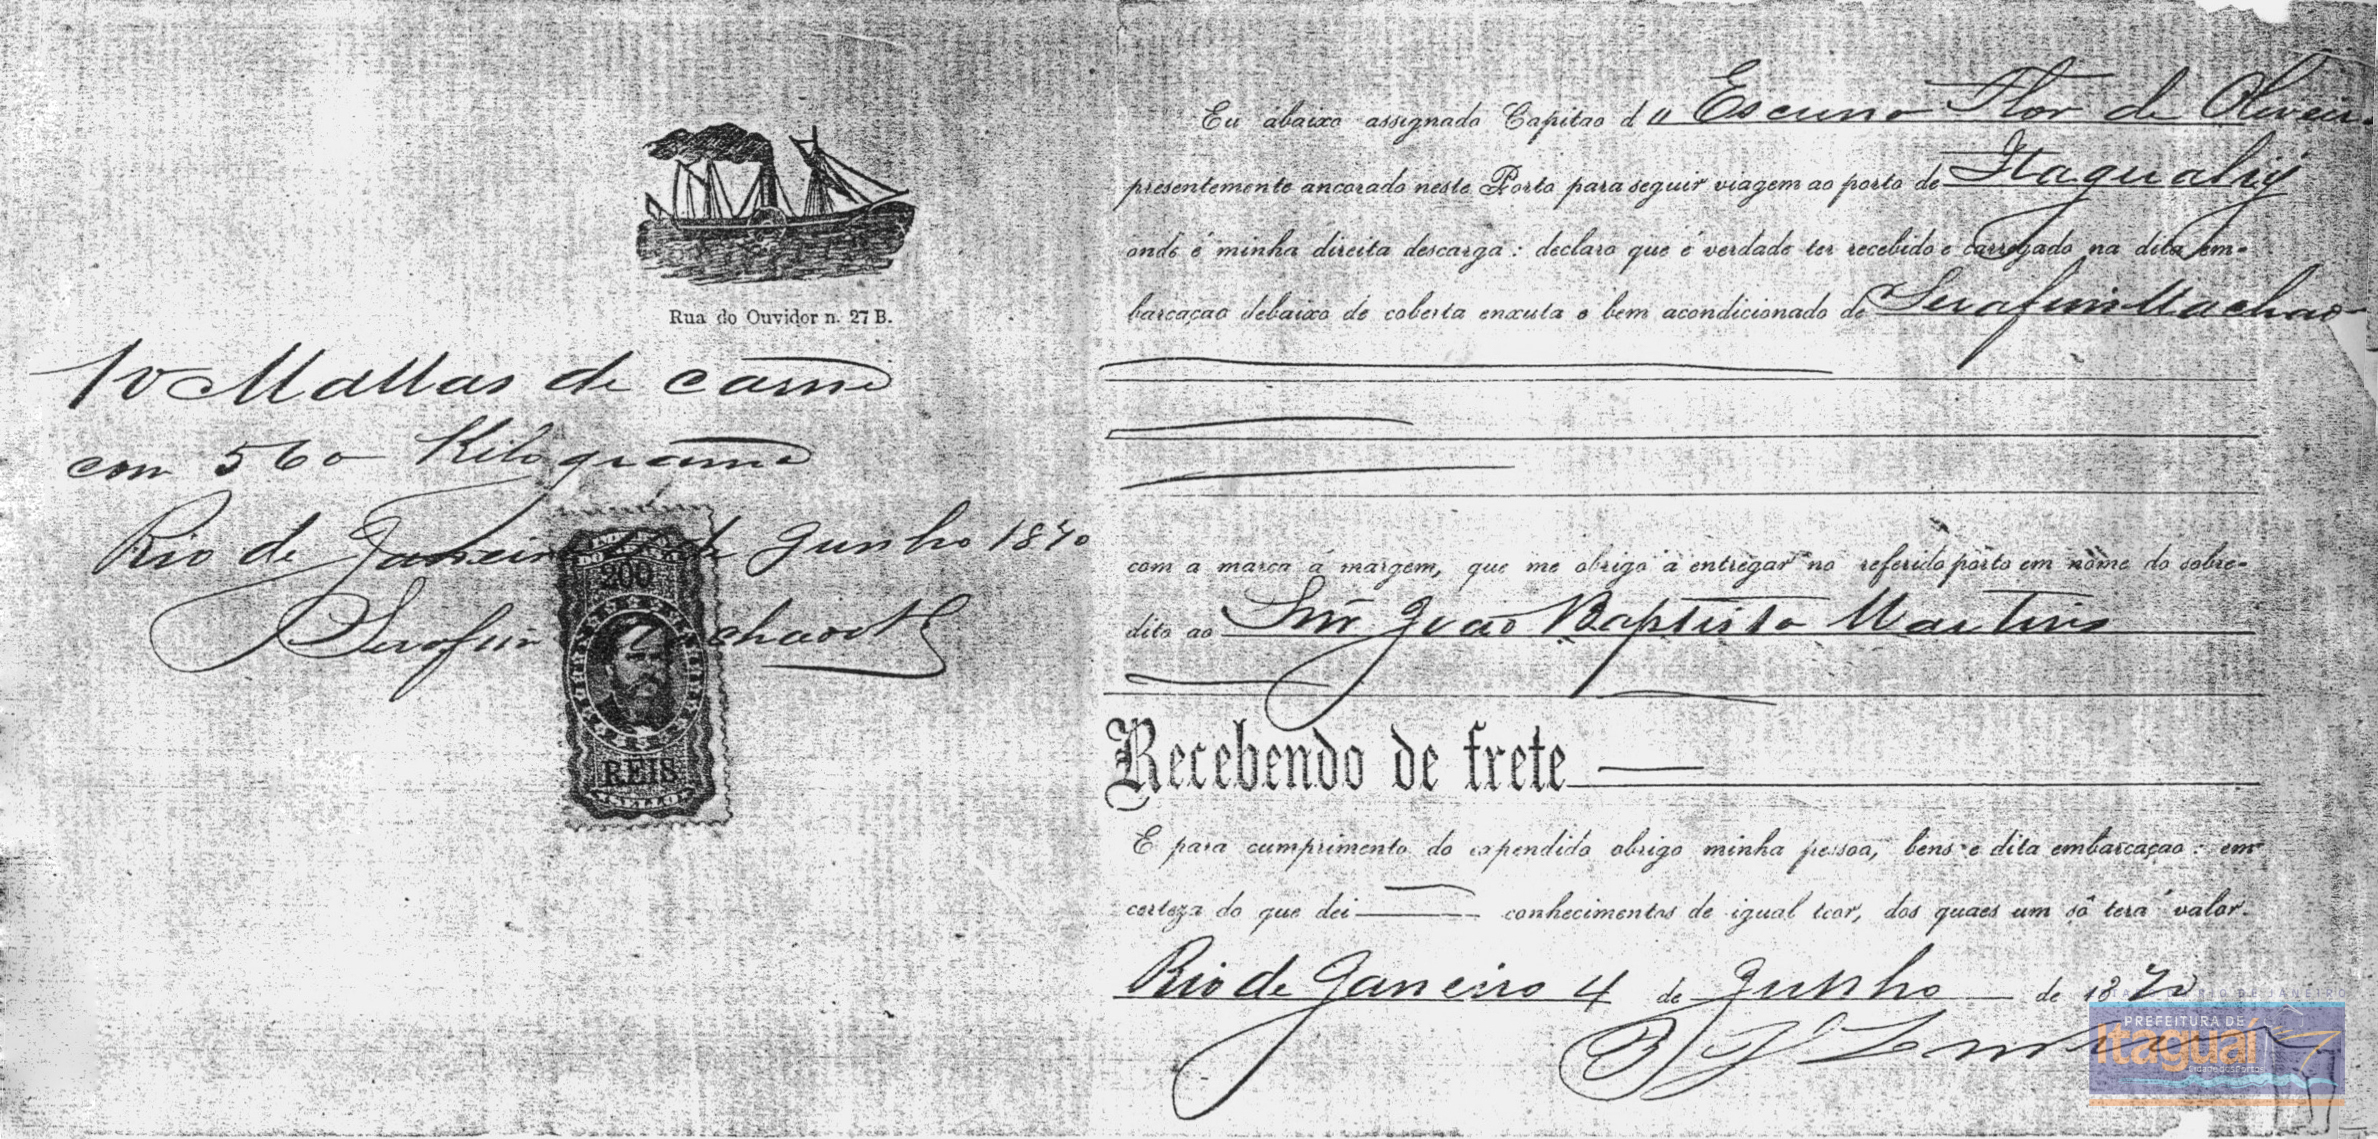 Rua do Ouvidor n. 27 B.
10 Mallas de carne
com 560 Kilograma
Rio de Janeiro de Junho 1870
Serafim
IMPERIO DO BRAZIL
200
REIS
SELLO
Eu abaixo assignado Capitao da Escuna Flor de Oliveira
presentemente ancorado neste Porto para seguir viagem ao porto de Itaguahy
onde é minha direita descarga: declaro que é verdade ter recebido e carregado na dita em-
barcaçao debaixo de coberta enxuta e bem acondicionado de Serafim Machado
com a marca á margem, que me obrigo á entregar no referido porto em nome do sobre-
dito ao Snr João Baptista Martins
Recebendo de frete
E para cumprimento do expendido obrigo minha pessoa, bens e dita embarcaçao: em
certeza do que dei conhecimentos de igual teor, dos quaes um só terá valor.
Rio de Janeiro 4 de Junho de 1870
PREFEITURA DE
Itaguaí
Cidade dos Portos